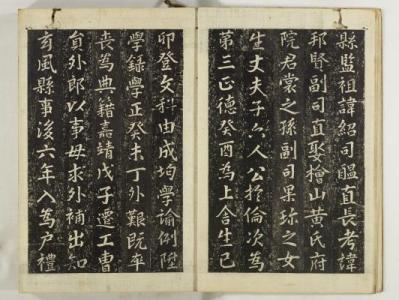 縣監祖諱紹司醞直長考諱
邦賢副司直娶檜山黃氏府
院君裳之孫副司果珎之女
生丈夫子六人公於倫次爲
第三正德癸酉爲上舍生己
卯登文科由成均學諭例陞
學錄學正癸未丁外艱既卒
喪爲典籍嘉靖戊子遷工曹
貟外郎以事母求外補出知
玄風縣事後六年入爲戶禮